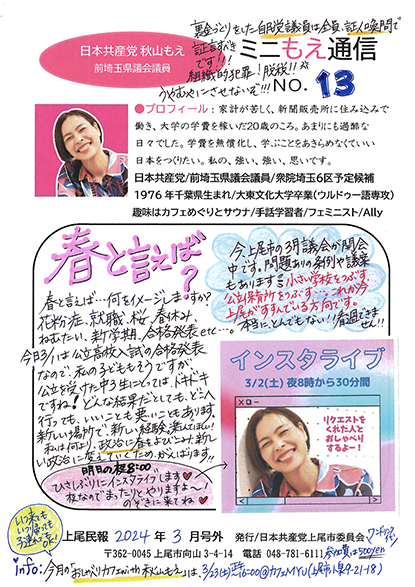 裏金づくりをした自民党議員は全員、証人喚問で
証言すべき
です!!
組織的犯罪!脱税!!
うやむやにさせないぞ!!!
日本共産党 秋山もえ
前埼玉県議会議員
ミニもえ通信
NO. 13
●プロフィール:家計が苦しく、新聞販売所に住み込みで
働き、大学の学費を稼いだ20歳のころ。あまりにも過酷な
日々でした。学費を無償化し、学ぶことをあきらめなくていい
日本をつくりたい。私の、強い、強い、思いです。
日本共産党/前埼玉県議会議員/衆院埼玉6区予定候補
1976年千葉県生まれ/大東文化大学卒業(ウルドゥー語専攻)
趣味はカフェめぐりとサウナ/手話学習者/フェミニスト/Ally
春と言えば?
春と言えば…何をイメージしますか?
花粉症、就職、桜、春休み、
ねむたい、新学期、合格発表etc…。
今日3/1は公立高校入試の合格発表
なので、私の子どももそうですが、
公立を受けた中3生にとっては、ドキドキ
ですね!どんな結果だとしても、どこへ
行っても、いいことも悪いこともあります。
新しい場所で、新しい経験、楽しんでほしい!
私は何より、政治に春をよびこみ、新し
い政治に変えていくため、がんばります!!
明日の夜8:00
ひさしぶりにインスタライブします
夜なのでまったりとやりますよ~!
のぞきに来てね
今、上尾市の3月議会が開会
中です。問題ありの条例や議案
もあります。小さい学校をつぶす、
公立保育所をつぶす…これが今
上尾がすすんでいる方向です。
本当に、とんでもない!!看過できま
せん!!
インスタライブ
3/2(土) 夜8時から30分間
リクエストを
くれた人と
おしゃべり
するよー!
いつ来ても
いつ帰っても
上尾民報 2024年3月号外 発行/日本共産党上尾市委員会
〒362-0045 上尾市向山3-4-14 電話 048-781-6111
参加費は500yen
Info: 今月の「おしゃべりカフェinわが秋山もえ」は、3/23(土)14:00~16:00@カフェMYU(上尾市小泉9-21-18)